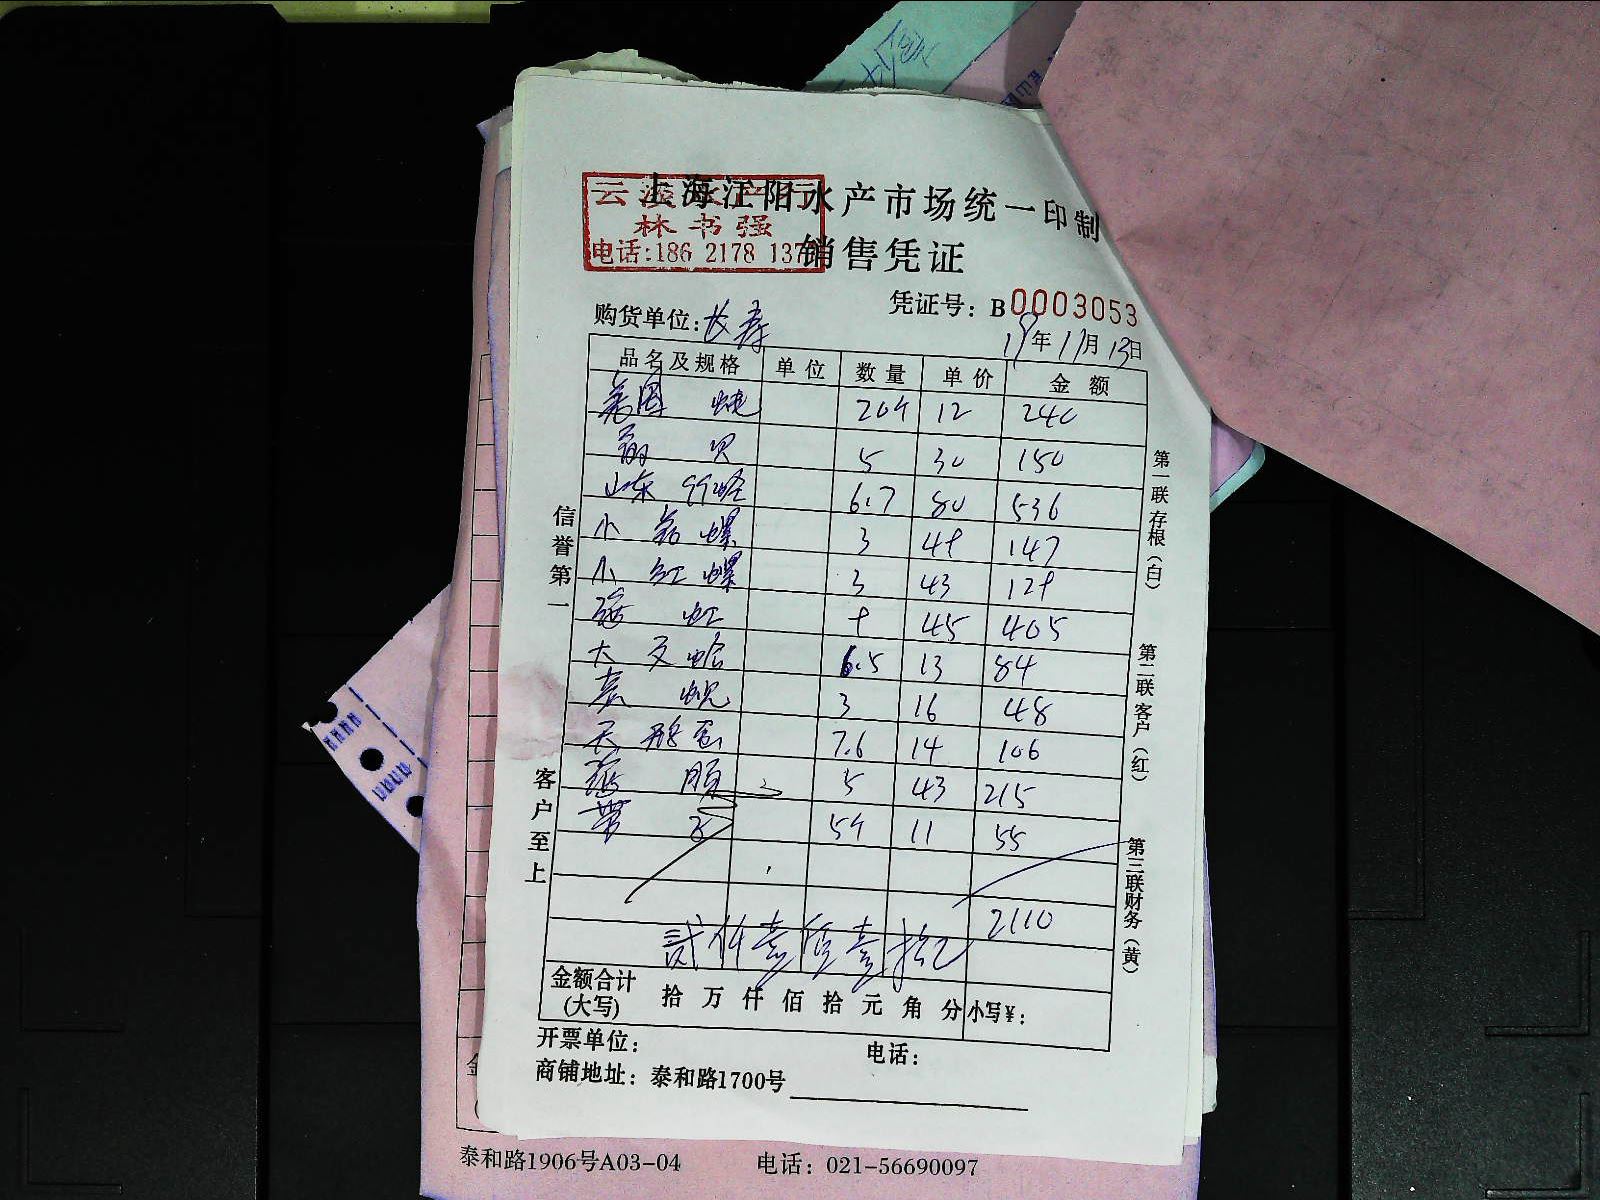 上海江阳水产市场统一印制
销售凭证
林书强
电话:186 2178 137
凭证号: B0003053
购货单位: 长寿
19年11月13日
品名及规格 单位 数量 单价 金额
美国 蚝 20个 12 240
贝 5 30 150
山东 6.7 80 536
小 螺 3 49 147
小 红 螺 3 43 129
海 虹 9 45 405
大 文 蛤 6.5 13 84
蚬 3 16 48
7.6 14 106
5 43 215
带 子 5个 11 55
2110
贰仟壹佰壹拾元
金额合计
(大写) 拾 万 仟 佰 拾 元 角 分 小写¥:
开票单位: 电话:
商铺地址: 泰和路1700号
信誉第一
客户至上
第一联存根(白)
第二联客户(红)
第三联财务(黄)
泰和路1906号A03-04 电话: 021-56690097